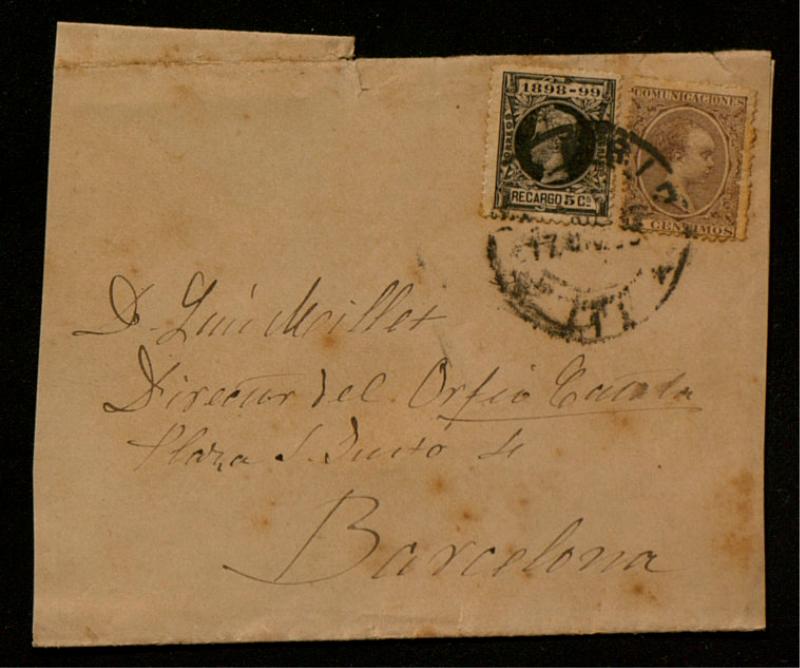 1898-99
CORREOS
RECARGO 5 Cs
COMUNICACIONES
CENTIMOS
D. Luis Millet
Director del Orfeo Catala
Plaza S. Justo 4
Barcelona